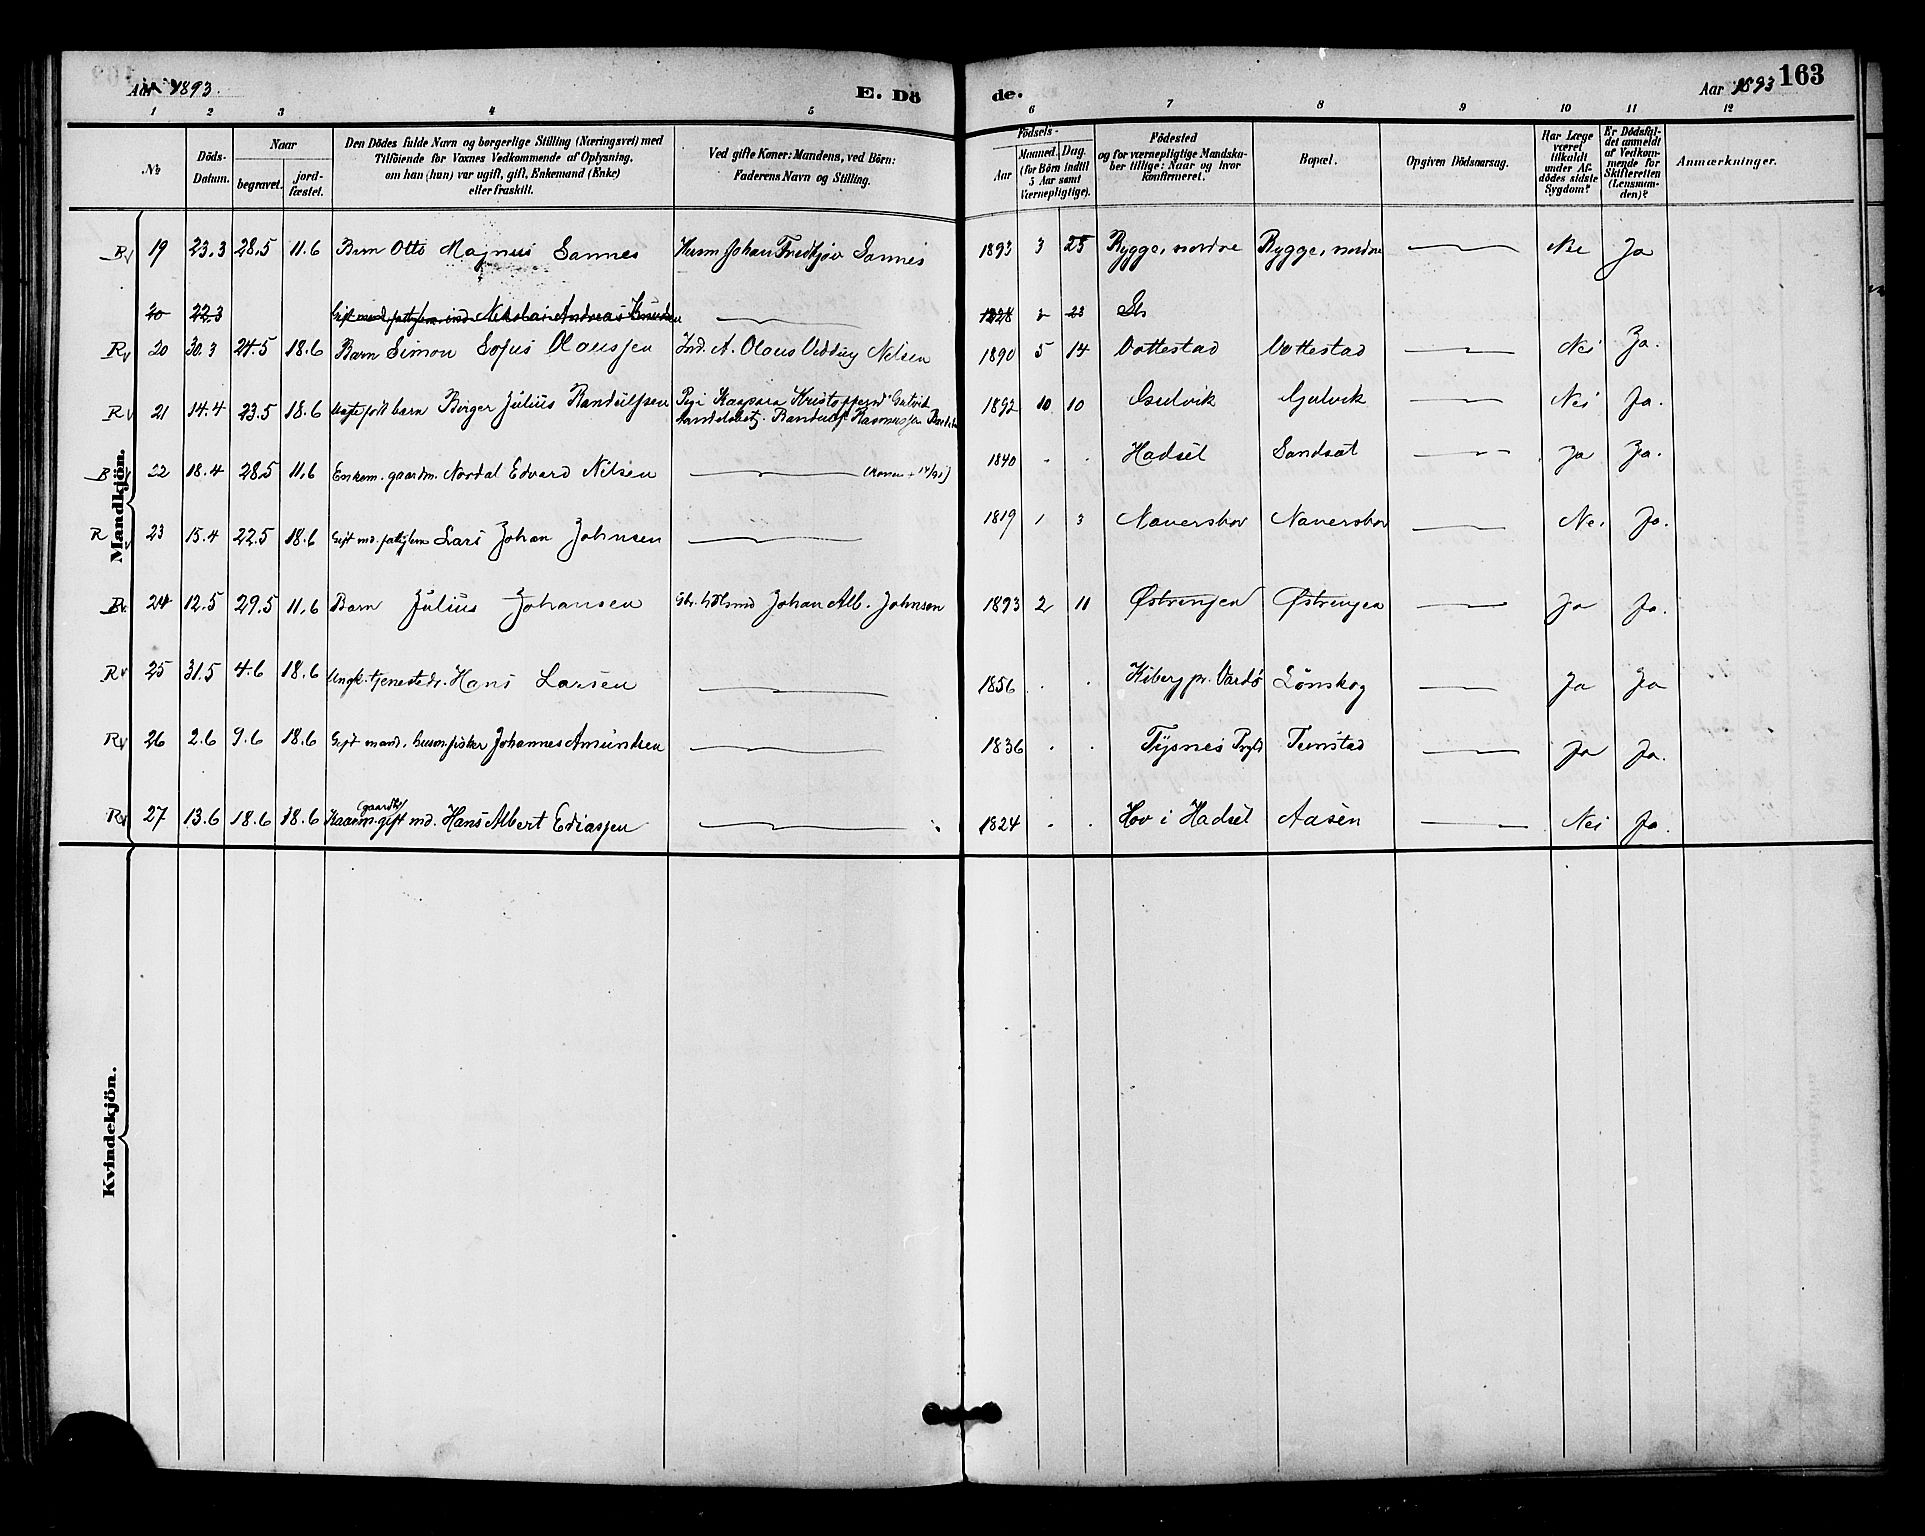 Aar 1893.
E. Dö
de.
Aar 1893
163
1 2 3 4 5 6 7 8 9 10 11 12
No
Döds-Datum.
Naar
begravet.
jord-fæstet.
Den Dödes fulde Navn og borgerlige Stilling (Næringsvei) med
Tilföiende for Voxnes Vedkommende af Oplysning,
om han (hun) var ugift, gift, Enkemand (Enke)
eller fraskilt.
Ved gifte Koner: Mandens, ved Börn:
Faderens Navn og Stilling.
Födsels-
Aar
Maaned. Dag.
(for Börn indtil
5 Aar samt
Værnepligtige).
Födested
og for værnepligtige Mandska-
ber tillige: Naar og hvor
konfirmeret.
Bopæl.
Opgiven Dödsaarsag.
Har Læge
været
tilkaldt
under Af-
dödes sidste
Sygdom?
Er Dödsfal-
det anmeldt
af Vedkom-
mende for
Skifteretten
(Lensman-
den)?
Anmærkninger.
Mandkjön.
19 23.3 28.5 11.6 Barn Otto Magnus Sannes Husm Johan Fredhjöv Sannes 1893 3 25 Rygge, nordre Rygge, nordre Nei Ja
20 22.3 Gift mand, fattiglem, ind. Nikolai Andreas Knudsen 1828 2 23
R 20 30.3 24.5 18.6 Barn Simon Sofus Olaussen Ind. A. Olaus Nilsen 1890 5 14 Vottestad Vottestad Nei Ja.
R 21 14.4 23.5 18.6 Uægtefödt barn Birger Julius Randulfsen Pige Kaspara Gulvik
Randulf Rasmussen 1892 10 10 Gulvik Gulvik Nei Ja.
B 22 18.4 28.5 11.6 Enkem. gaardm. Nordal Edvard Nilsen 1840 . . Hadsel Sandsöt Ja Ja.
R 23 15.4 22.5 18.6 Gift md. fattiglem Lars Johan Johnsen 1819 1 3 Naverskov Naverskov Nei Ja.
24 12.5 29.5 11.6 Barn Julius Johansen Johan Alb. Johnsen 1893 2 11 Østrengen Østrengen Ja Ja.
R 25 31.5 4.6 18.6 Ungk. tjenestedr. Hans Larsen 1856 . . Kiberg pr. Vardö Lönskog Ja Ja
R 26 2.6 9.6 18.6 Gift mand, husm fisker Johannes Amundsen 1836 . . Tysnes Prgld Tunstad Ja Ja.
R 27 13.6 18.6 18.6 Kaarm. gift md. Hans Albert Ediassen 1824 . . Hov i Hadsel Aasen Nei Ja.
Kvindekjön.